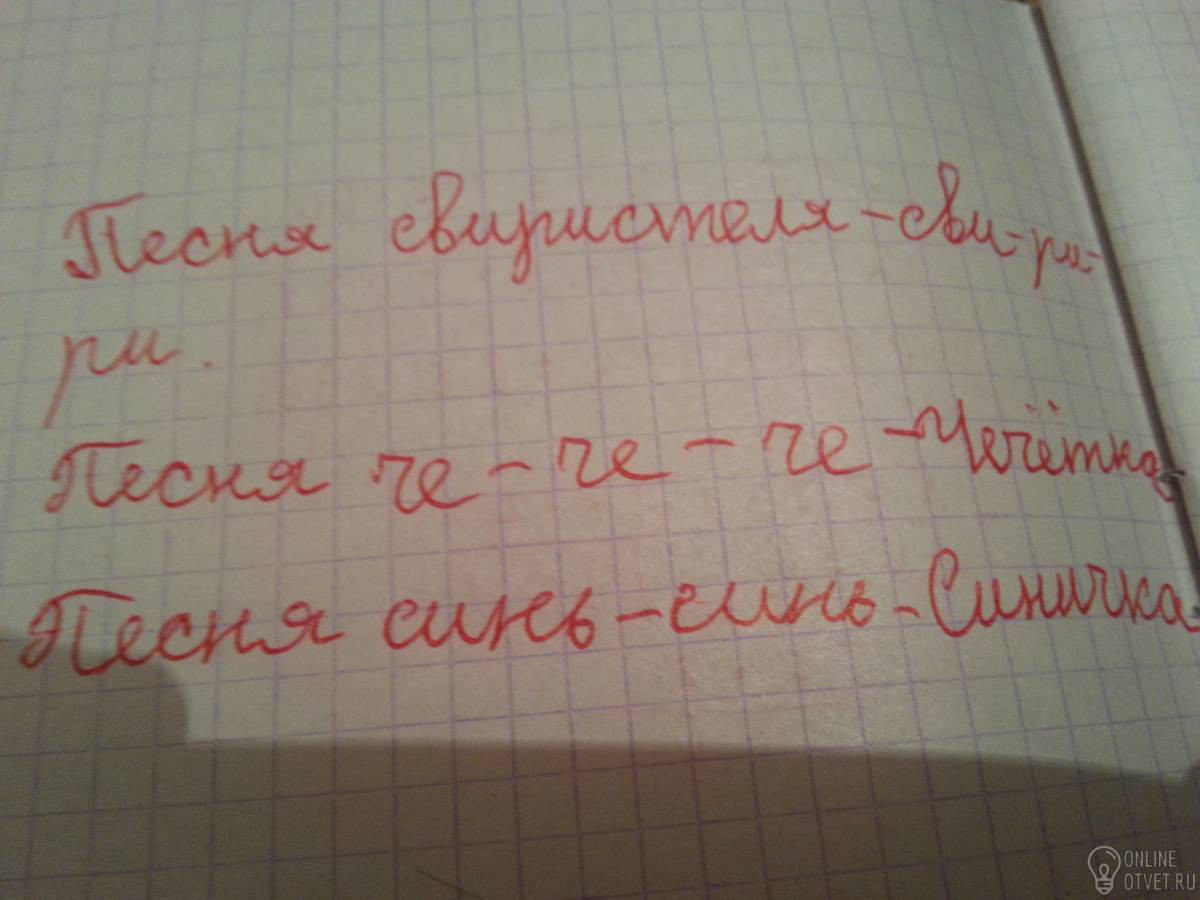 Песня свиристеля - сви-ри-
ри.
Песня че - че - че - Чечётка
Песня синь - синь - Синичка
ONLINE
OTVET.RU